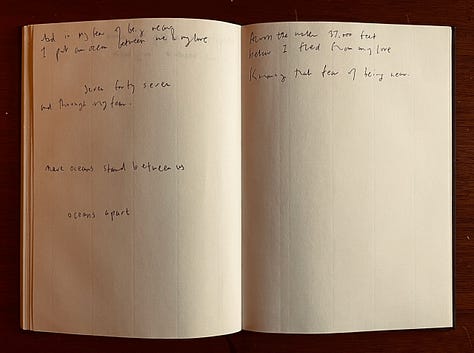 And in my fear of being near
I put an ocean between me & my love
Seven forty seven
and through my fear.
mere oceans stand between us
oceans apart
Across the water 37,000 feet
below I fled from my love
Knowing that fear of being near.